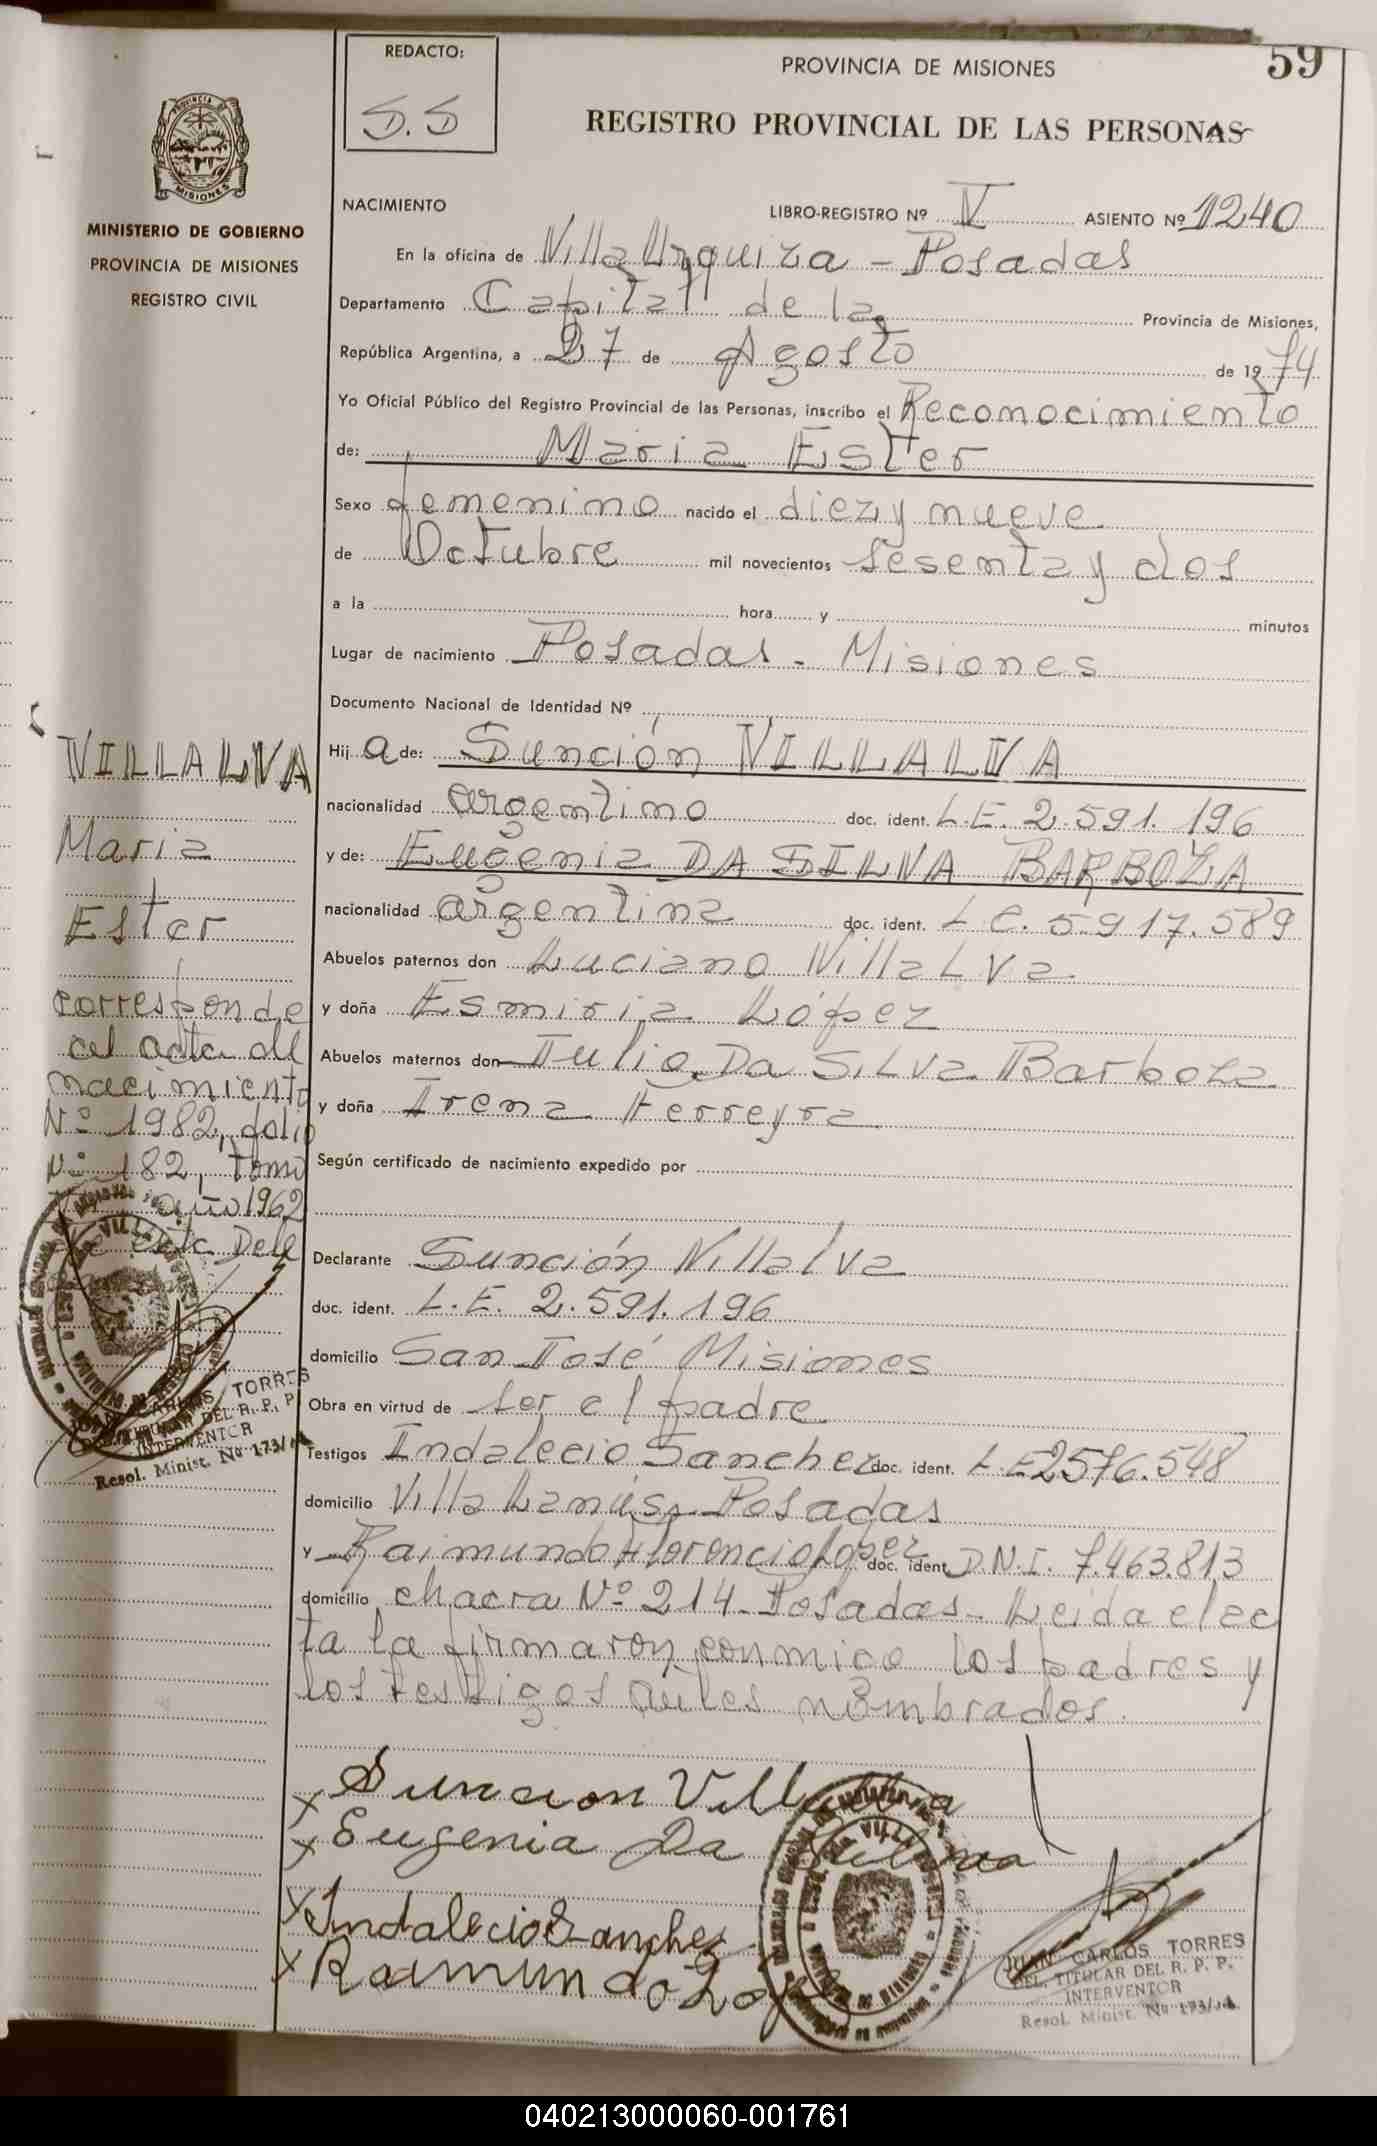 REDACTO:
S.S
PROVINCIA DE MISIONES
59
REGISTRO PROVINCIAL DE LAS PERSONAS
MISIONES
MINISTERIO DE GOBIERNO
PROVINCIA DE MISIONES
REGISTRO CIVIL
NACIMIENTO LIBRO-REGISTRO Nº V ASIENTO Nº 1240
En la oficina de Villa Urquiza - Posadas
Departamento Capital de la Provincia de Misiones,
República Argentina, a 27 de Agosto de 1974
Yo Oficial Público del Registro Provincial de las Personas, inscribo el Reconocimiento
de: Maria Ester
Sexo femenino nacido el diez y nueve
de Octubre mil novecientos sesenta y dos
a la hora y minutos
Lugar de nacimiento Posadas - Misiones
Documento Nacional de Identidad Nº
Hij a de: Sunción VILLALVA
nacionalidad argentino doc. ident. L.E. 2.591.196
y de: Eugenia DA SILVA BARBOZA
nacionalidad argentina doc. ident. L.C. 5.917.589
Abuelos paternos don Luciano Villalva
y doña Esmiria López
Abuelos maternos don Julio Da Silva Barboza
y doña Irena Ferreyra
Según certificado de nacimiento expedido por
Declarante Sunción Villalva
doc. ident. L.E. 2.591.196
domicilio San José Misiones
Obra en virtud de ser el padre
Testigos Indalecio Sanchez doc. ident. L.E 2576.548
domicilio Villa Lanús - Posadas
y Raimundo Florencio Lopez doc. ident. D.N.I. 7.463.813
domicilio chacra Nº 214 - Posadas - Leida el ac
ta la firmaron conmigo los padres y
los testigos antes nombrados.
VILLALVA
Maria
Ester
corresponde
al acta de
nacimiento
Nº 1982, folio
Nº 182, Tomo
año 1962
de esta Del
JUAN CARLOS TORRES
DEL. TITULAR DEL R. P. P.
INTERVENTOR
Resol. Minist. Nº 173/
Suncion Villalva
Eugenia Da Silva
Indalecio Sanchez
Raimundo Lopez
JUAN CARLOS TORRES
DEL. TITULAR DEL R. P. P.
INTERVENTOR
Resol. Minist. Nº 173/
040213000060-001761